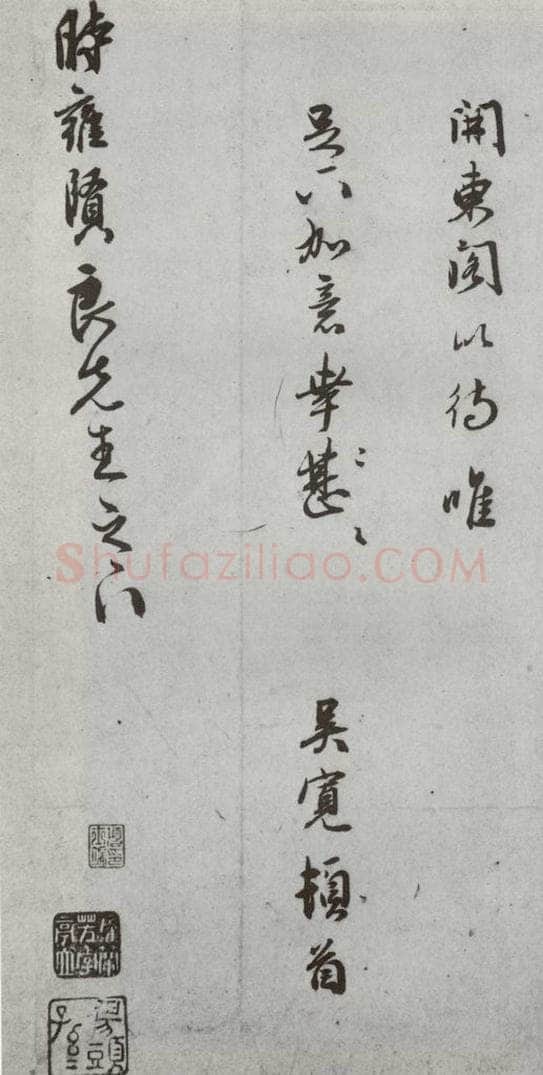 開東閣以待唯
足下加意幸甚〻
吳寬頓首
時雍賢良先生之下
Shufaziliao.COM